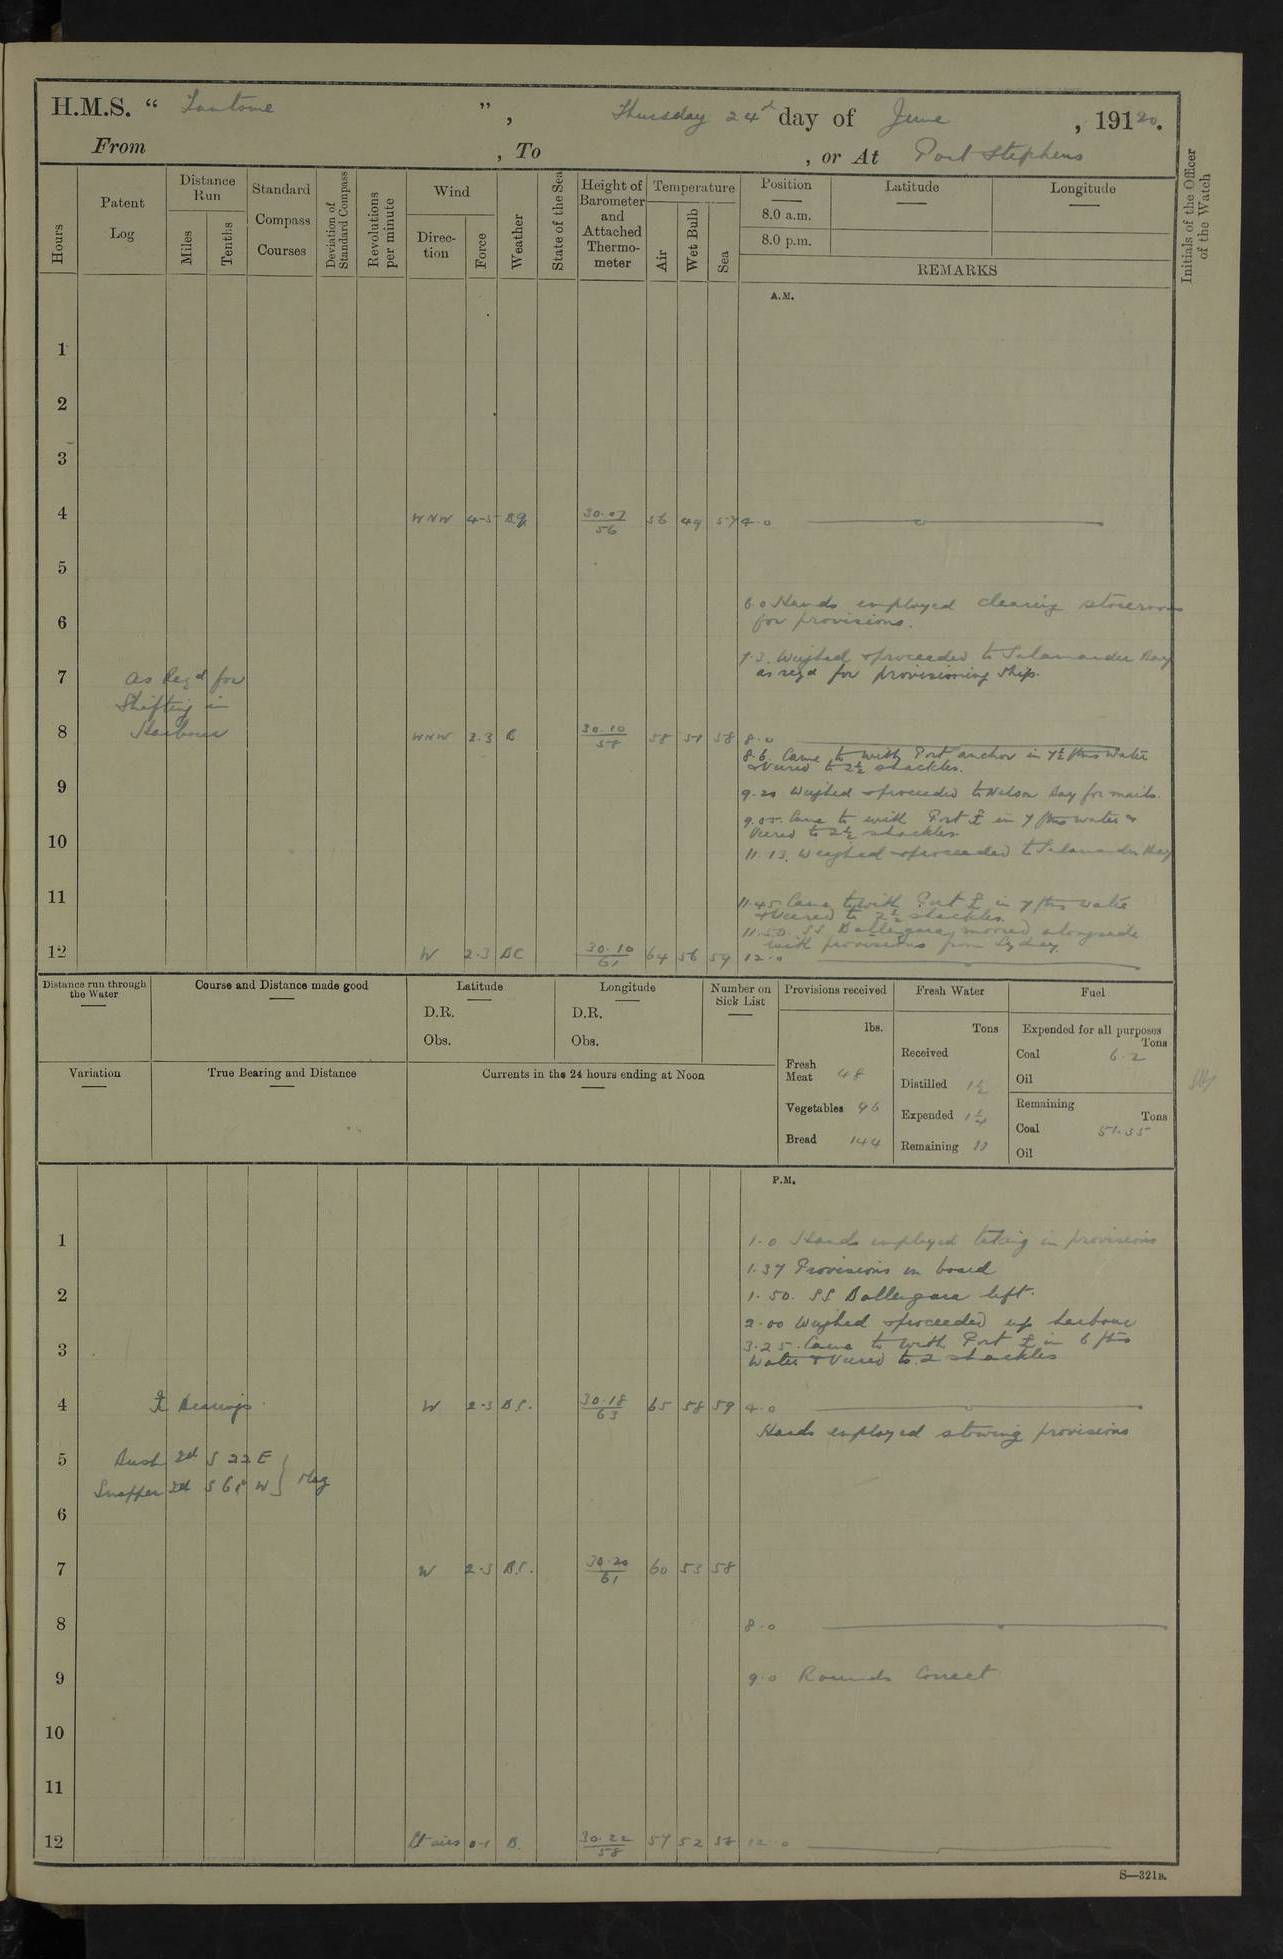 H.M.S. “ Fantome ”, Thursday 24th day of June, 19120.
From , To , or At Port Stephens
Hours
Patent Log
Distance Run
Miles
Tenths
Standard Compass Courses
Deviation of Standard Compass
Revolutions per minute
Wind
Direction
Force
Weather
State of the Sea
Height of Barometer and Attached Thermometer
Temperature
Air
Wet Bulb
Sea
Position
8.0 a.m.
8.0 p.m.
Latitude
Longitude
REMARKS
Initials of the Officer of the Watch
A.M.
1
2
3
4 WNW 4-5 B.q. 30.07/56 56 49 57 4.0
5
6.0 Hands employed clearing storerooms
6 for provisions.
7.3. Weighed & proceeded to Salamander Bay
7 as reqd for provisioning ship.
As Reqd for
Shifting in
Harbour
8 WNW 2.3 B 30.10/58 58 51 58 8.0
8.6. Came to with Port anchor in 7½ fms water
& Veered to 2½ shackles.
9 9.20 Weighed & proceeded to Nelson Bay for mails.
Came to with Port ⚓ in 7 fms water &
10 Veered to 2½ shackles.
11.13. Weighed & proceeded to Salamander Bay
11
11.45 Came to with Port ⚓ in 7 fms water
& Veered to 2½ shackles.
11.50. SS Ballengara moored alongside
with provisions from Sydney.
12 W 2.3 BC 30.10/61 64 56 59 12.0
Distance run through the Water
Course and Distance made good
Latitude
D.R.
Obs.
Longitude
D.R.
Obs.
Number on Sick List
Provisions received
lbs.
Fresh Meat 48
Vegetables 96
Bread 144
Fresh Water
Tons
Received
Distilled 1½
Expended 1¼
Remaining 11
Fuel
Expended for all purposes
Tons
Coal 6.2
Oil
Remaining
Tons
Coal 51.35
Oil
Variation
True Bearing and Distance
Currents in the 24 hours ending at Noon
P.M.
1 1.0 Hands employed taking in provisions
1.37 Provisions on board
2 1.50. SS Ballengara left.
2.00 Weighed & proceeded up harbour
3 3.25. Came to with Port ⚓ in 6 fms
Water & Veered to 2 shackles
4 ⚓ Bearings W 2.3 B.C. 30.18/63 65 58 59 4.0
Hands employed stowing provisions
5 Bush Id S 22 E
Snapper Id S 61 W } Mag
6
7 W 2.3 B.C. 30.20/61 60 53 58
8 8.0
9 9.0 Rounds Correct
10
11
12 Lt airs 0-1 B. 30.22/58 57 52 58 12.0
S—321B.